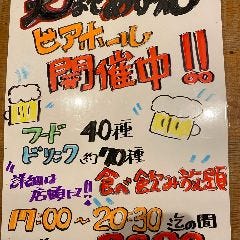 ビアホール
開催中!!
フード 40種
ドリンク 約70種
詳細は
店頭に!!
食べ飲み放題
17:00〜20:30迄の間